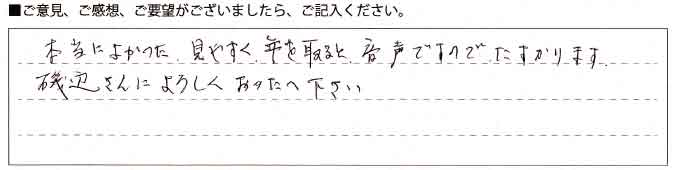 ■ご意見、ご感想、ご要望がございましたら、ご記入ください。
本当によかった、見やすく、年を取ると、音声ですのでたすかります。
磯辺さんによろしくおつたへ下さい